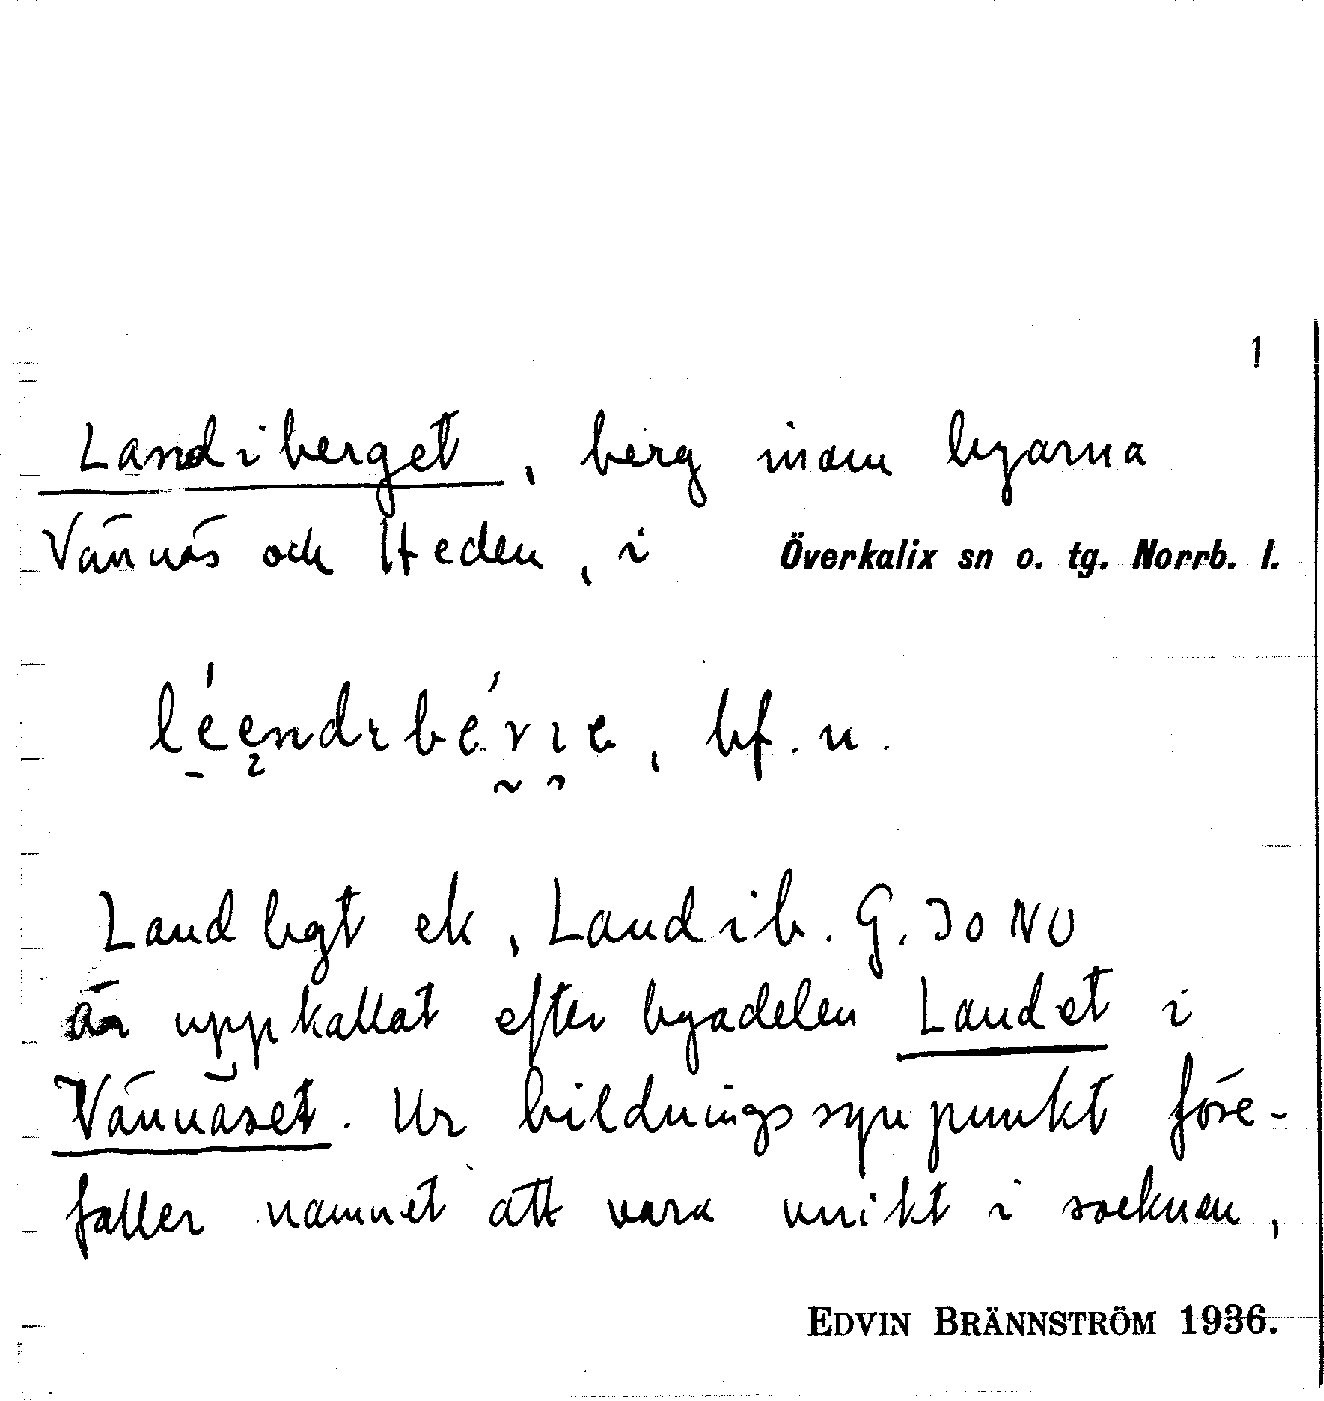 1
Landiberget, berg inom byarna
Vännäs och Heden, i Överkalix sn o. tg. Norrb. l.
bf. n.
Landbgt ek, Landib. G. JoNU
är uppkallat efter byadelen Landet i
Vännäset. Ur bildningssynpunkt före-
faller namnet att vara unikt i socknen,
EDVIN BRÄNNSTRÖM 1936.